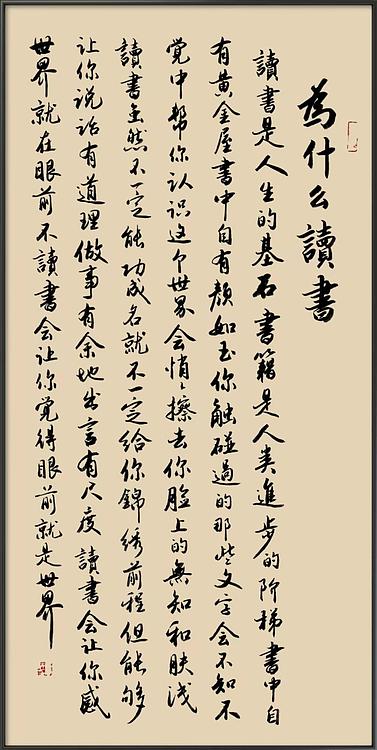 為什么讀書
讀書是人生的基石書籍是人类進步的阶梯書中自
有黄金屋書中自有颜如玉你触碰過的那些文字会不知不
覺中幫你认识这个世界会悄悄擦去你脸上的無知和肤浅
讀書虽然不一定能功成名就不一定给你錦绣前程但能够
让你说话有道理做事有余地出言有尺度讀書会让你感
世界就在眼前不讀書会让你覺得眼前就是世界